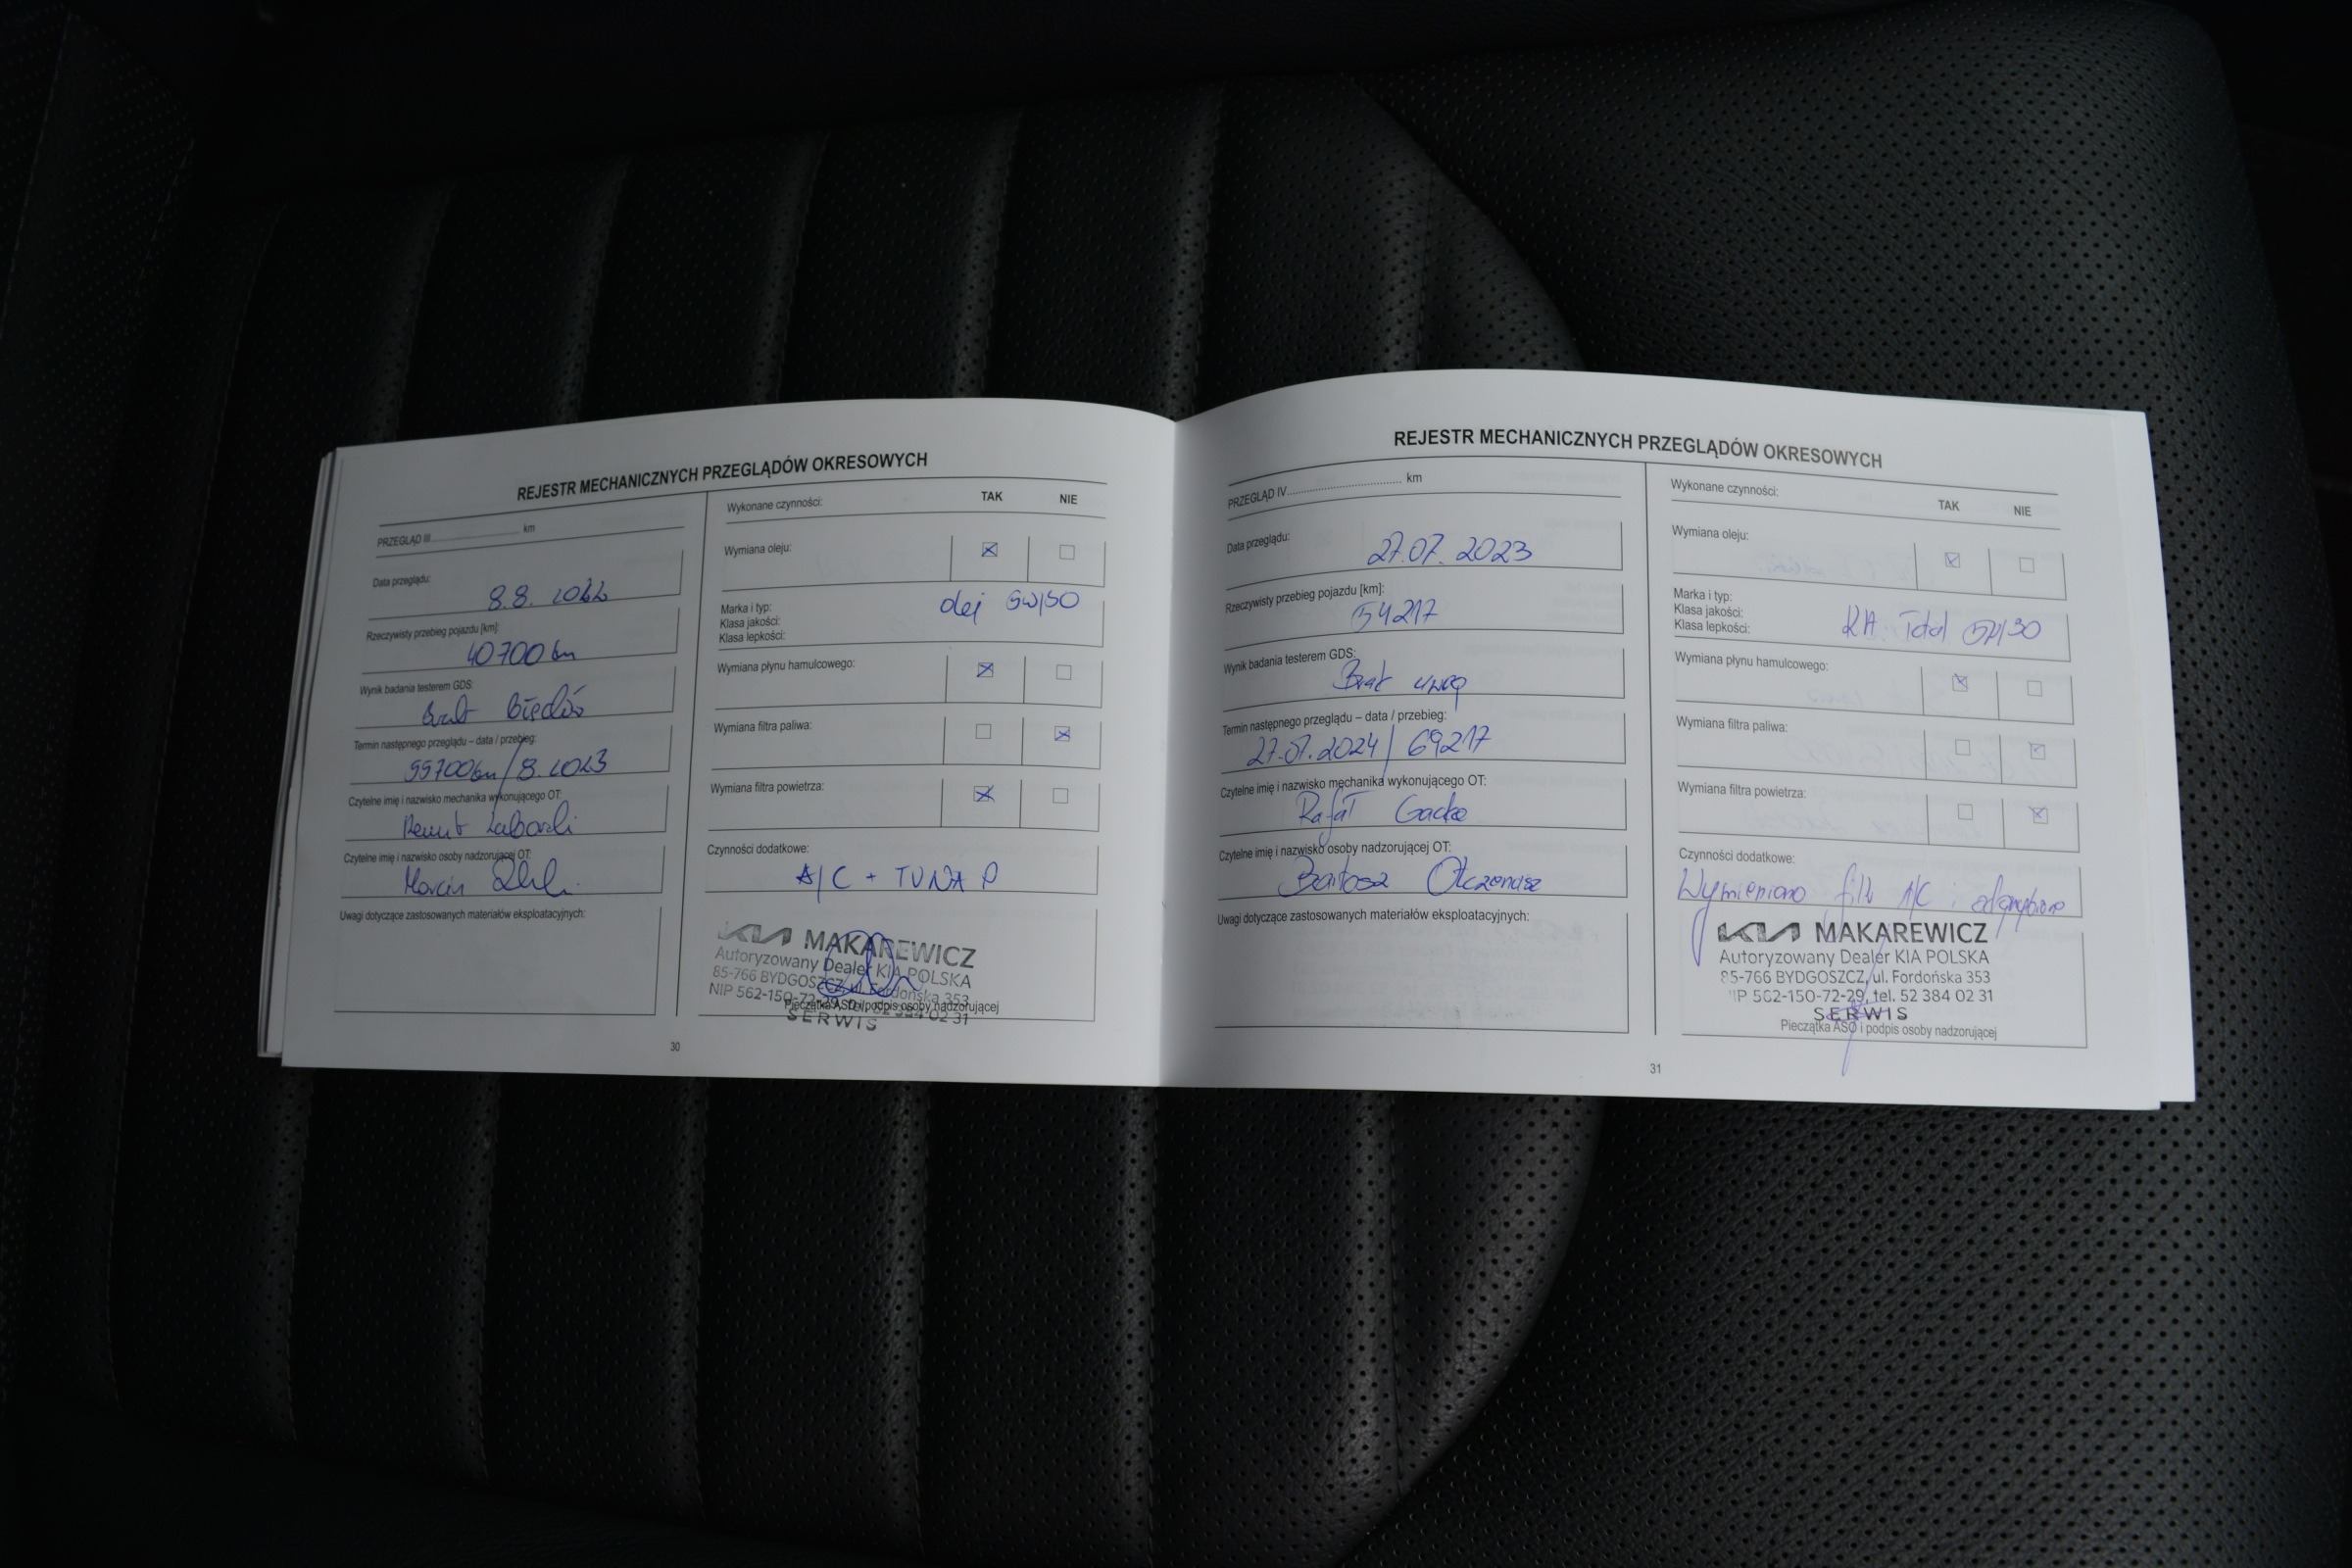 REJESTR MECHANICZNYCH PRZEGLĄDÓW OKRESOWYCH
PRZEGLĄD III.............................. km
Data przeglądu:
8.8. 2022
Rzeczywisty przebieg pojazdu [km]:
40700 km
Wynik badania testerem GDS:
Brak błędów
Termin następnego przeglądu – data / przebieg:
55700km / 8.2023
Czytelne imię i nazwisko mechanika wykonującego OT:
Czytelne imię i nazwisko osoby nadzorującej OT:
Marcin
Uwagi dotyczące zastosowanych materiałów eksploatacyjnych:
Wykonane czynności: TAK NIE
Wymiana oleju:
Marka i typ:
Klasa jakości:
Klasa lepkości:
olej 5W/30
Wymiana płynu hamulcowego:
Wymiana filtra paliwa:
Wymiana filtra powietrza:
Czynności dodatkowe:
A/C + TUNAP
KIA MAKAREWICZ
Autoryzowany Dealer KIA POLSKA
85-766 BYDGOSZCZ, ul. Fordońska 353
NIP 562-150-72-29, tel. 52 384 02 31
Pieczątka ASO i podpis osoby nadzorującej
SERWIS
30
REJESTR MECHANICZNYCH PRZEGLĄDÓW OKRESOWYCH
PRZEGLĄD IV.................................... km
Data przeglądu:
27.07.2023
Rzeczywisty przebieg pojazdu [km]:
54217
Wynik badania testerem GDS:
Brak uwag
Termin następnego przeglądu – data / przebieg:
27.07.2024 / 69217
Czytelne imię i nazwisko mechanika wykonującego OT:
Rafał
Czytelne imię i nazwisko osoby nadzorującej OT:
Bartosz
Uwagi dotyczące zastosowanych materiałów eksploatacyjnych:
Wykonane czynności: TAK NIE
Wymiana oleju:
Marka i typ:
Klasa jakości:
Klasa lepkości:
Total
Wymiana płynu hamulcowego:
Wymiana filtra paliwa:
Wymiana filtra powietrza:
Czynności dodatkowe:
Wymieniono filtr A/C i odgrzybiono
KIA MAKAREWICZ
Autoryzowany Dealer KIA POLSKA
85-766 BYDGOSZCZ, ul. Fordońska 353
NIP 562-150-72-29, tel. 52 384 02 31
SERWIS
Pieczątka ASO i podpis osoby nadzorującej
31